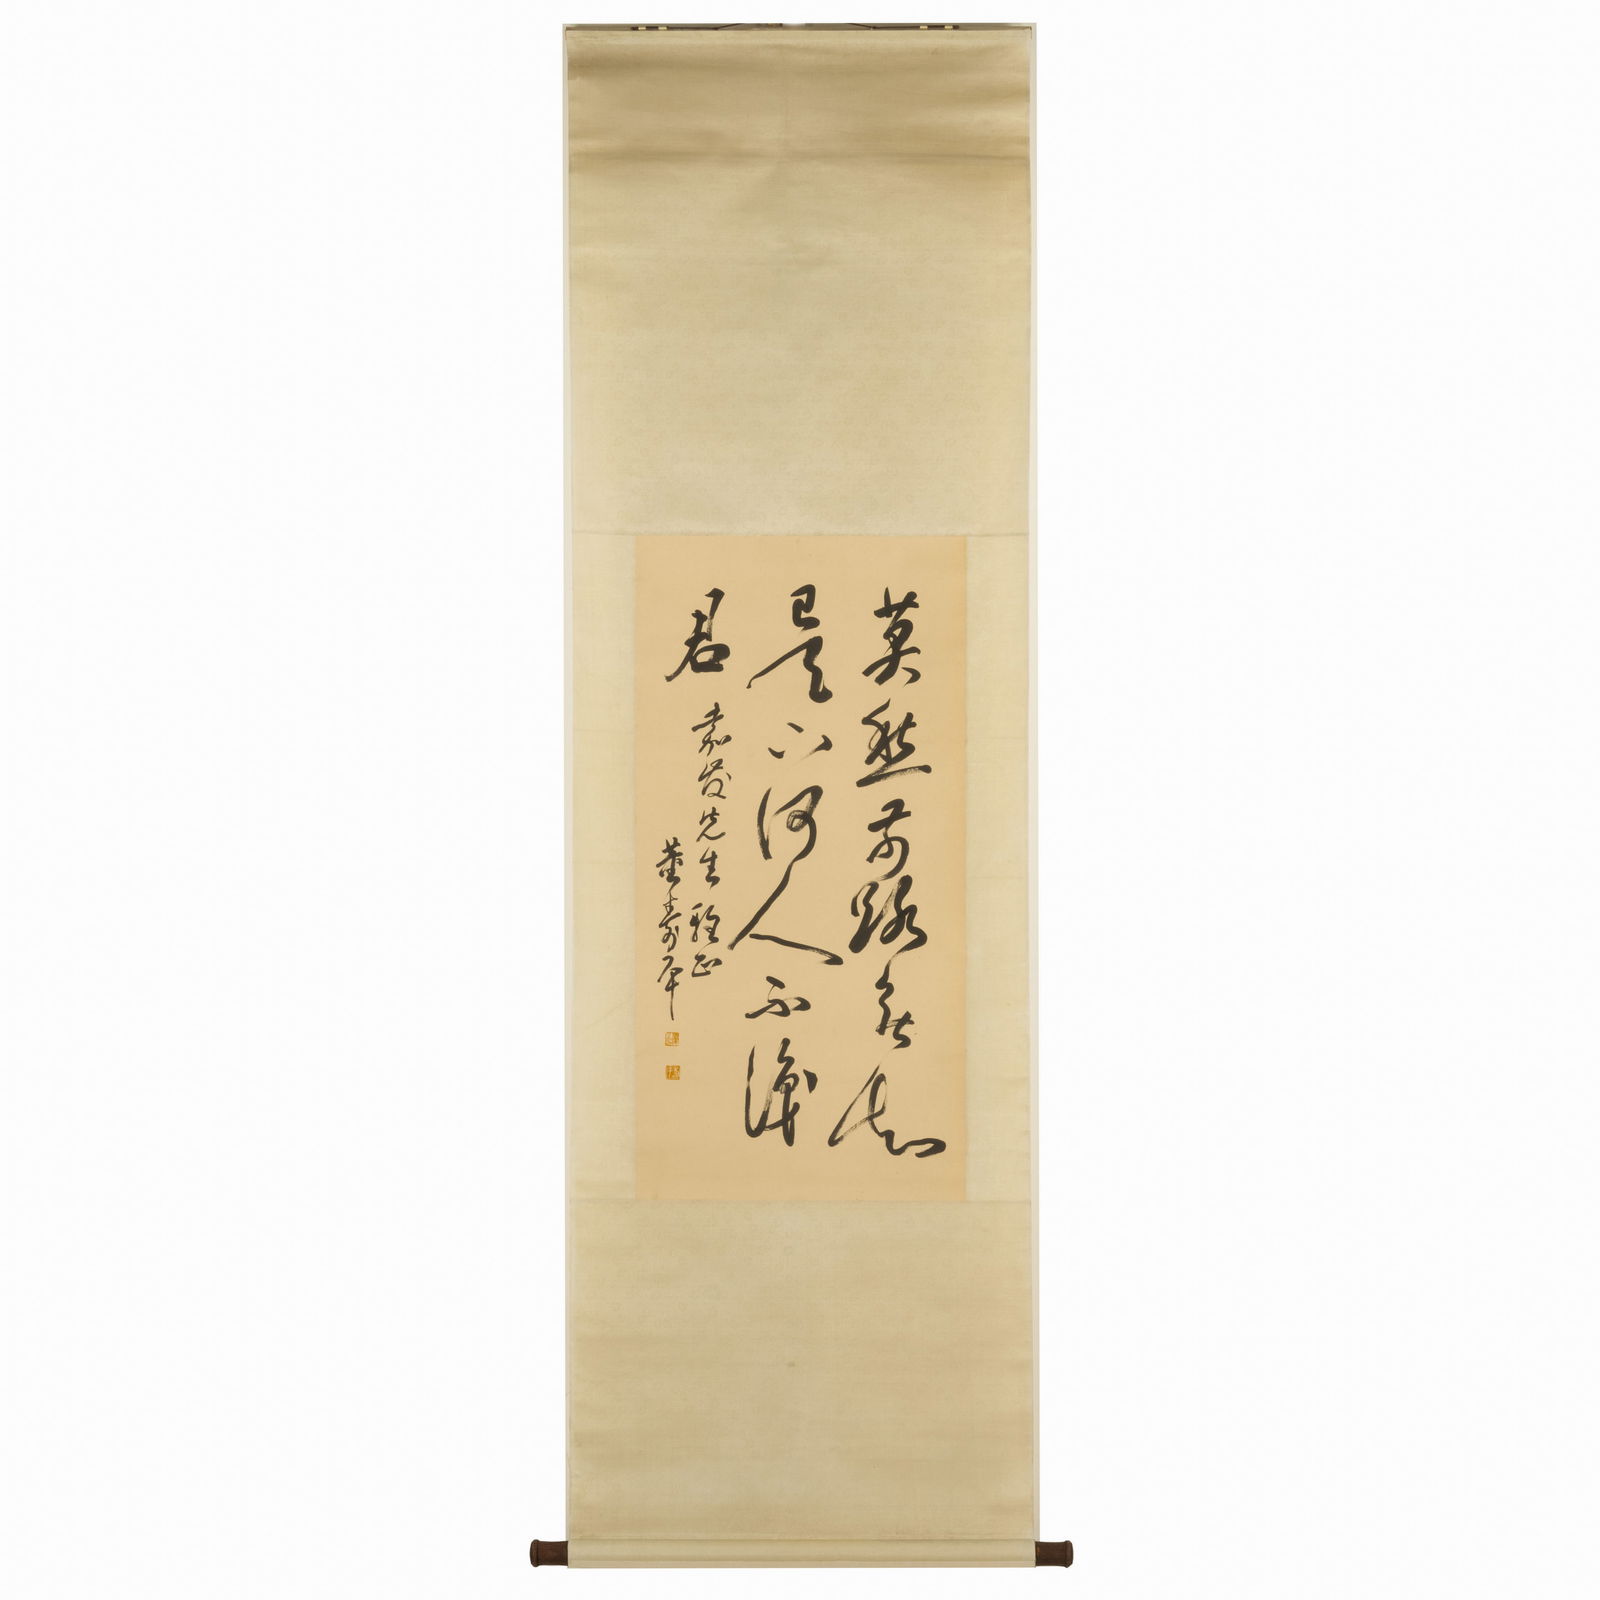 莫愁前路無知
己天下何人不識
君
嘉發先生雅正
董壽平